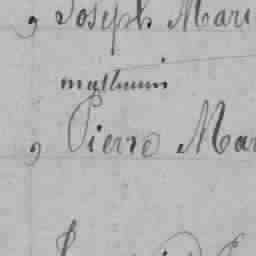 , Joseph Mari
mathurin
, Pierre Mar